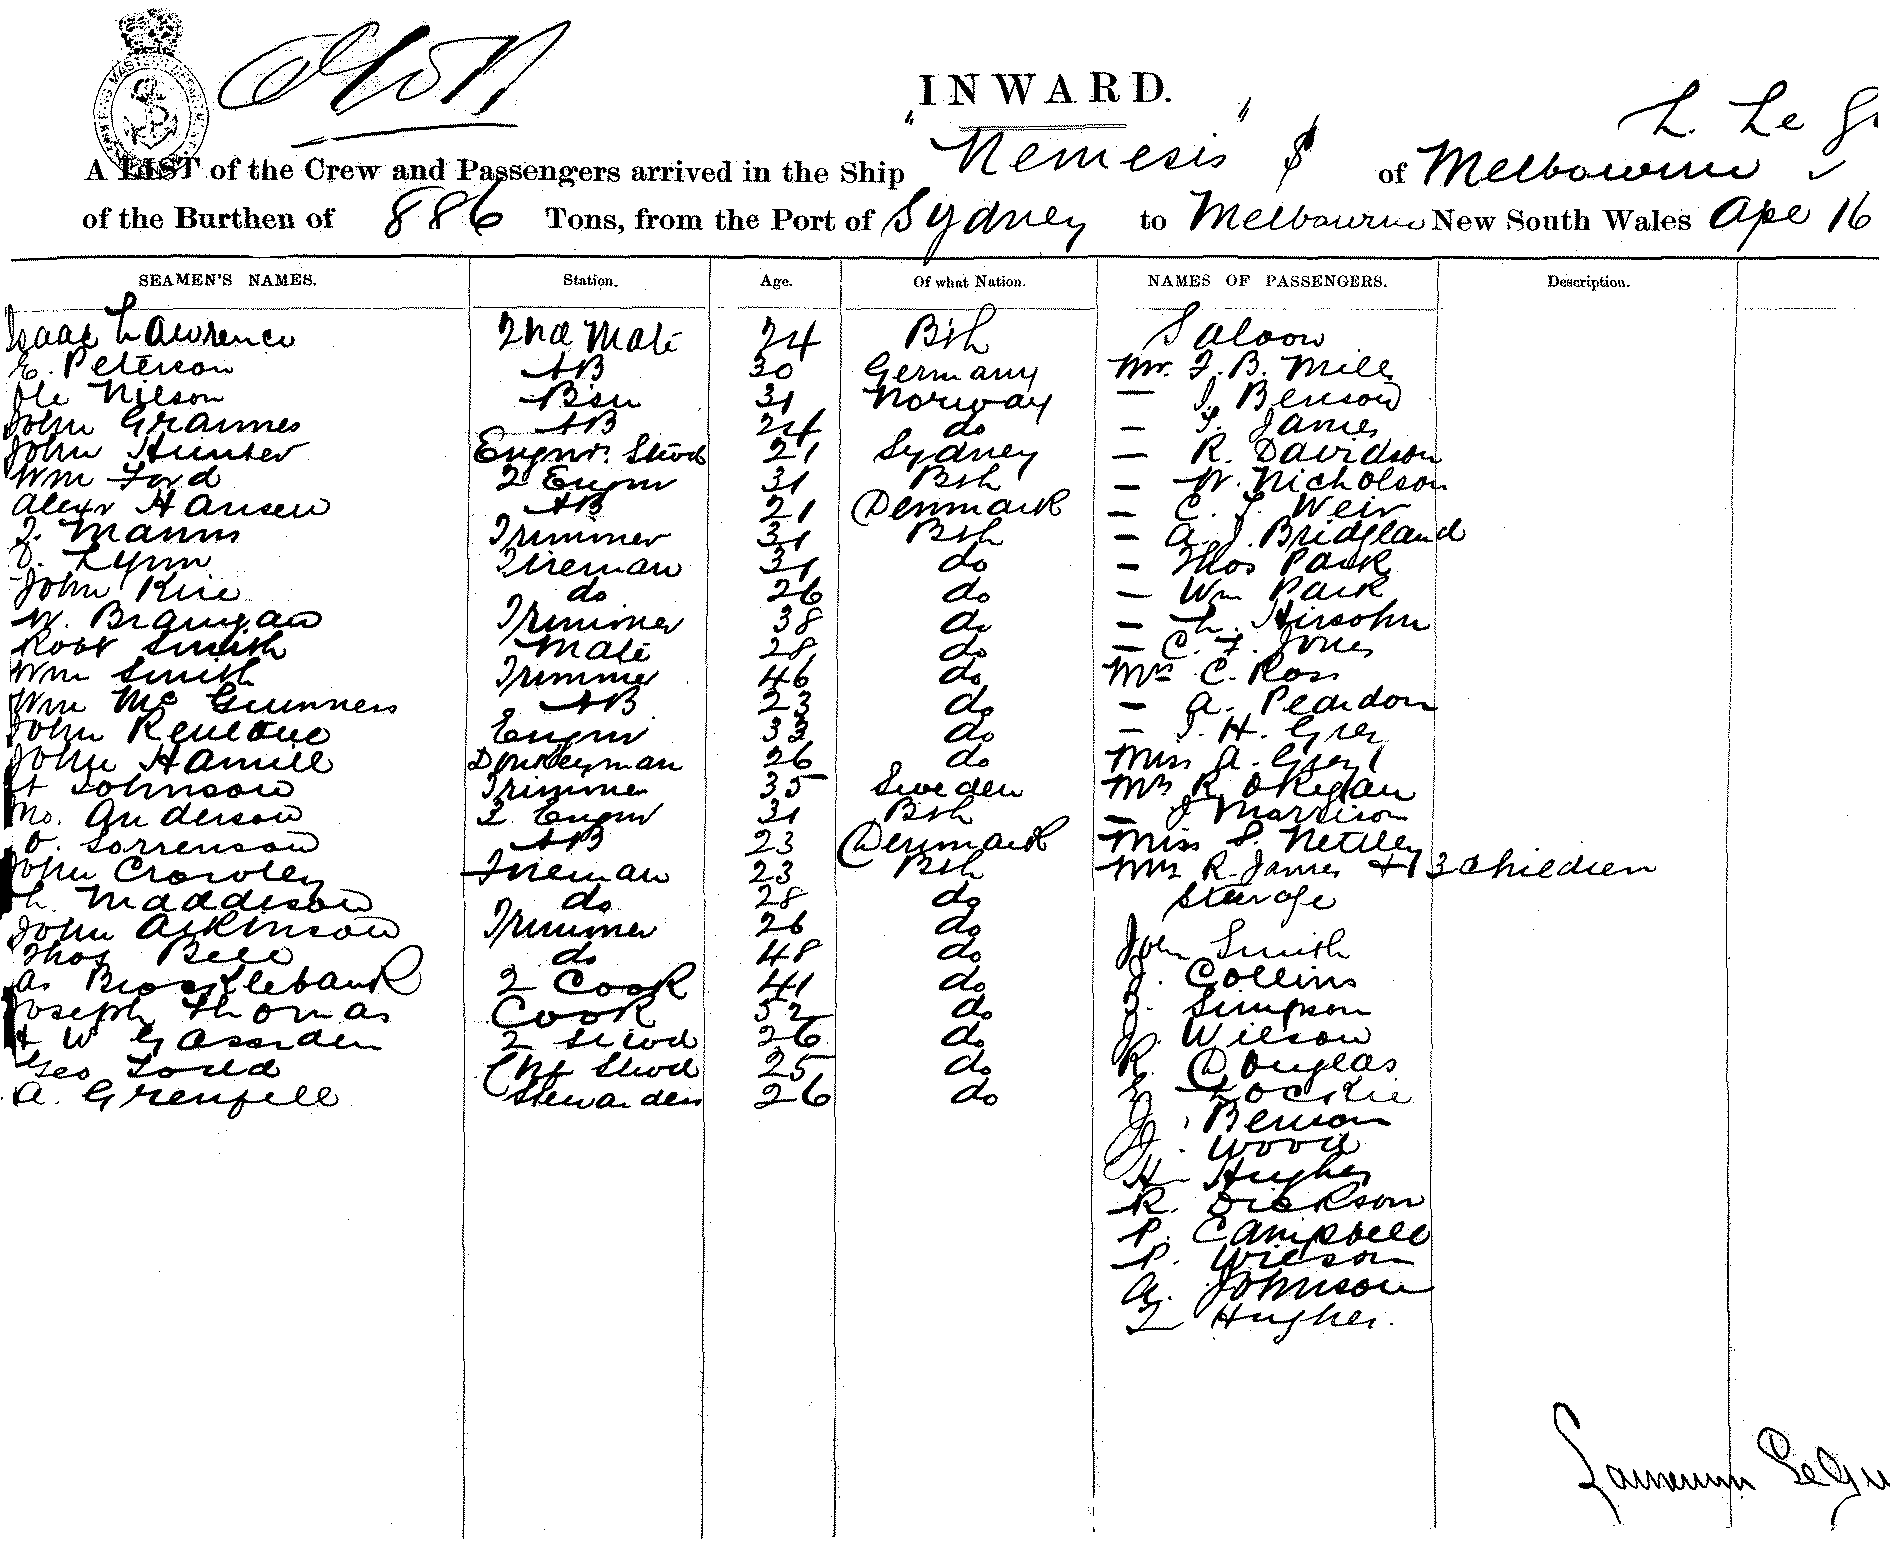 INWARD.
L. Le
A LIST of the Crew and Passengers arrived in the Ship "Nemesis" of Melbourne
of the Burthen of 886 Tons, from the Port of Sydney to Melbourne New South Wales Ape 16
SEAMEN'S NAMES. Station. Age. Of what Nation. NAMES OF PASSENGERS. Description.
Isaac Lawrence 2nd Mate 24 Bsh Saloon
E. Peterson AB 30 Germany Mr. F. B. Mills
Ole Nilson Bsn 31 Norway — J. Benson
John Grannes AB 24 do — J. James
John Hunter Engnrs. Stwd 21 Sydney — R. Davidson
Wm Ford 2 Engnr 31 Bsh — W. Nicholson
Alexr Hansen AB 21 Denmark — C. J. Weir
J. Manns Trimmer 31 Bsh — A. J. Bridgland
J. Lynn Fireman 31 do — Thos Park
John Rice do 26 do — Wm Park
W. Branigan Trimmer 38 do — L. Hirsohn
Robt Smith Mate 28 do — C. F. Jones
Wm Smith Trimmer 46 do Mrs C. Ross
Wm Mc Gunness AB 23 do — A. Peardon
John Engnr 33 do — J. H. Grey
John Hamill Donkeyman 26 do Miss A. Grey
Johnson Trimmer 35 Sweden Mrs R. OKegan
Mo. Anderson 3 Engnr 31 Bsh — J Marrison
O. Sorrenson AB 23 Denmark Miss S. Nettley
John Crowley Fireman 23 Bsh Mrs R. James + 3 Children
L. Maddison do 28 do Sterage
John Atkinson Trimmer 26 do John Smith
Thos Bell do 48 do J. Collins
As Brocklebank 2 Cook 41 do J. Simpson
Joseph Thomas Cook 52 do J. Wilson
W 2 Stwd 26 do R. Douglas
Geo Chf Stwd 25 do E Lockie
A. Grenfell Stewardess 26 do J. Benson
J. Wood
H Hughes
R. Dickson
P. Campbell
P. Wilson
A. Johnson
T Hughes.